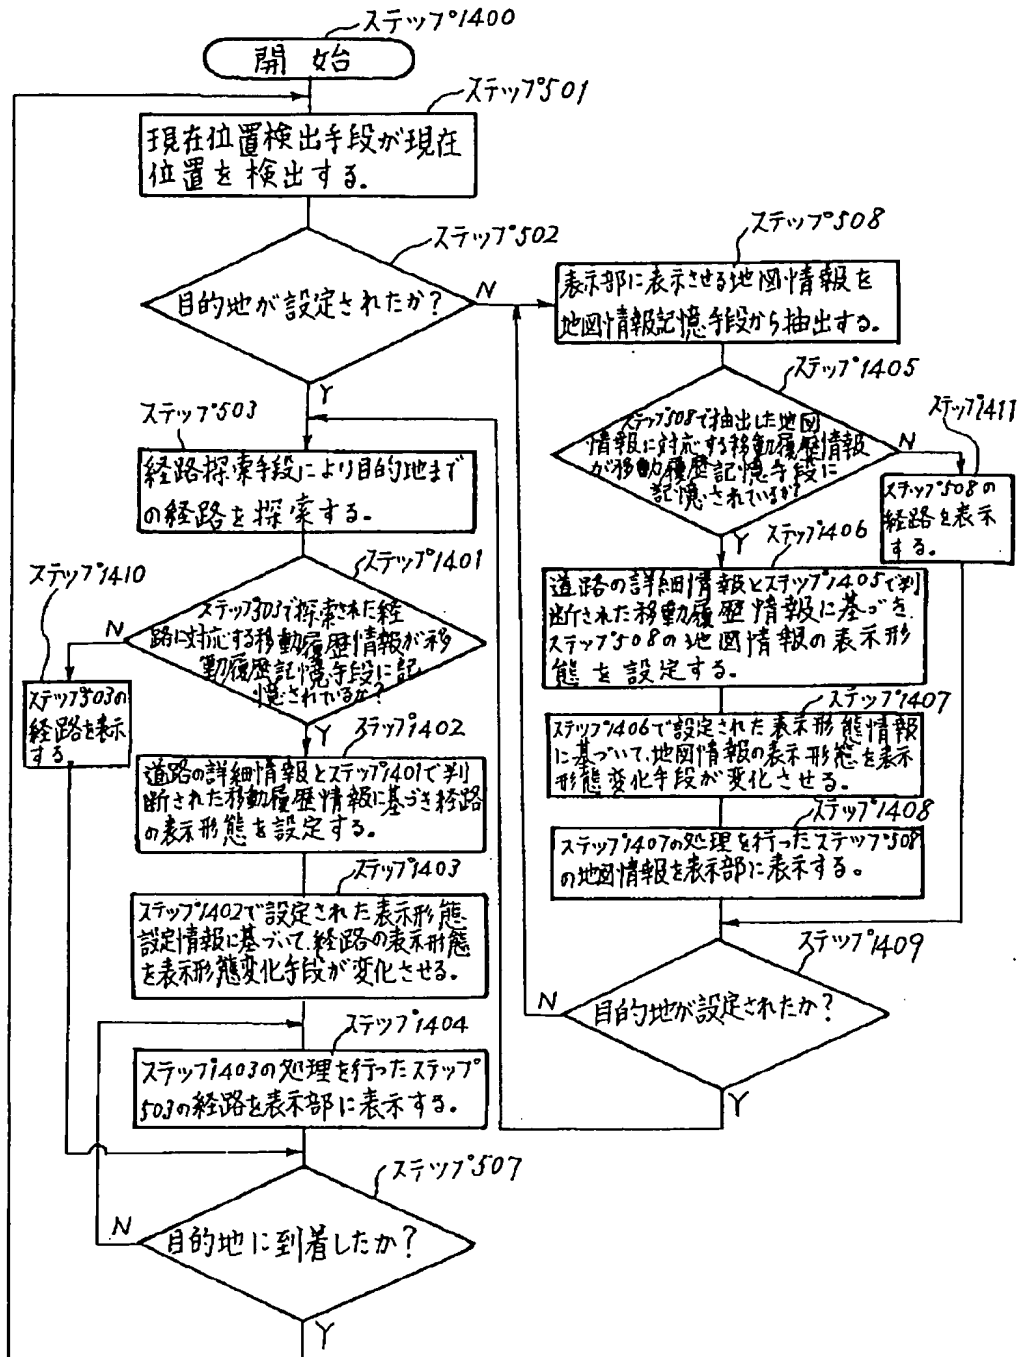 ステップ1400
開始
ステップ501
現在位置検出手段が現在
位置を検出する。
ステップ502
目的地が設定されたか?
N
Y
ステップ503
経路探索手段により目的地まで
の経路を探索する。
ステップ1401
ステップ503で探索された経
路に対応する移動履歴情報が移
動履歴記憶手段に記
憶されているか?
N
Y
ステップ1410
ステップ503の
経路を表示
する
ステップ1402
道路の詳細情報とステップ1401で判
断された移動履歴情報に基づき経路
の表示形態を設定する。
ステップ1403
ステップ1402で設定された表示形態
設定情報に基づいて、経路の表示形態
を表示形態変化手段が変化させる。
ステップ1404
ステップ1403の処理を行ったステップ
503の経路を表示部に表示する。
ステップ507
目的地に到着したか?
N
Y
ステップ508
表示部に表示させる地図情報を
地図情報記憶手段から抽出する。
ステップ1405
ステップ508で抽出した地図
情報に対応する移動履歴情報
が移動履歴記憶手段に
記憶されているか?
N
Y
ステップ1411
ステップ508の
経路を表示
する。
ステップ1406
道路の詳細情報とステップ1405で判
断された移動履歴情報に基づき、
ステップ508の地図情報の表示形
態を設定する。
ステップ1407
ステップ1406で設定された表示形態情報
に基づいて、地図情報の表示形態を表示
形態変化手段が変化させる。
ステップ1408
ステップ1407の処理を行ったステップ508
の地図情報を表示部に表示する。
ステップ1409
目的地が設定されたか?
N
Y